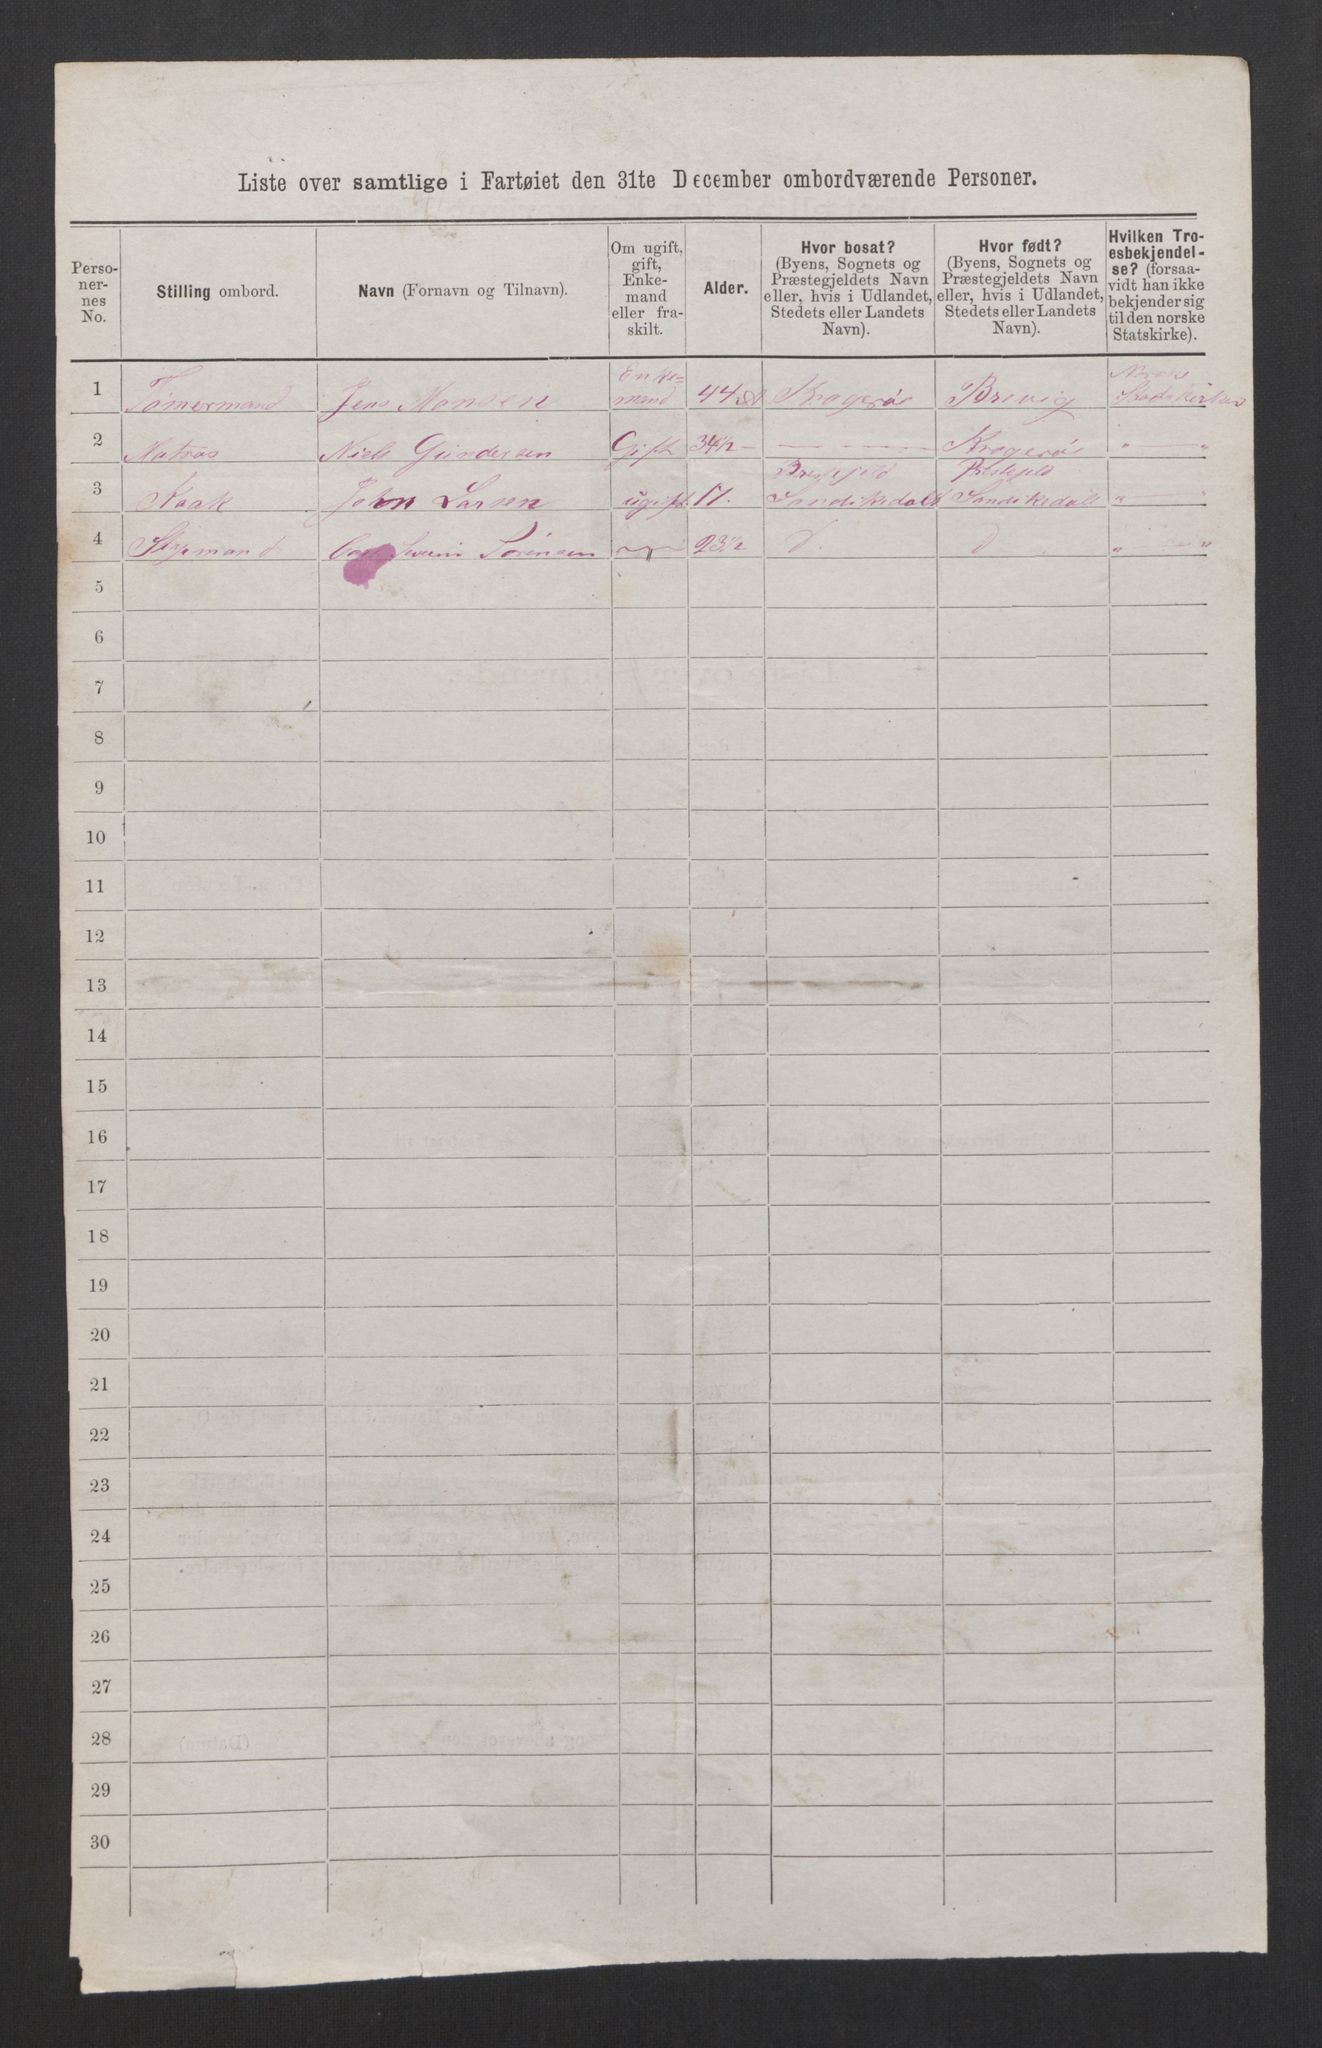 Liste over samtlige i Fartøiet den 31te December ombordværende Personer.
Perso-
ner-
nes
No.
Stilling ombord.
Navn (Fornavn og Tilnavn).
Om ugift,
gift,
Enke-
mand
eller fra-
skilt.
Alder.
Hvor bosat?
(Byens, Sognets og
Præstegjeldets Navn
eller, hvis i Udlandet,
Stedets eller Landets
Navn).
Hvor født?
(Byens, Sognets og
Præstegjeldets Navn
eller, hvis i Udlandet,
Stedets eller Landets
Navn).
Hvilken Tro-
esbekjendel-
se? (forsaa-
vidt han ikke
bekjender sig
til den norske
Statskirke).
1 Tömermand Jens Monsen Enke=
mand 44 Kragerö Brevig Norske
Stadskirken
2 Matros Niels Gundersen Gift 34½ — — — Krogerö " — "
3 Kaak John Larsen ugift 17. Sandikedal Sandikedal " — "
4 Styrmand Sörensen 23½ D. D " — "
5
6
7
8
9
10
11
12
13
14
15
16
17
18
19
20
21
22
23
24
25
26
27
28
29
30